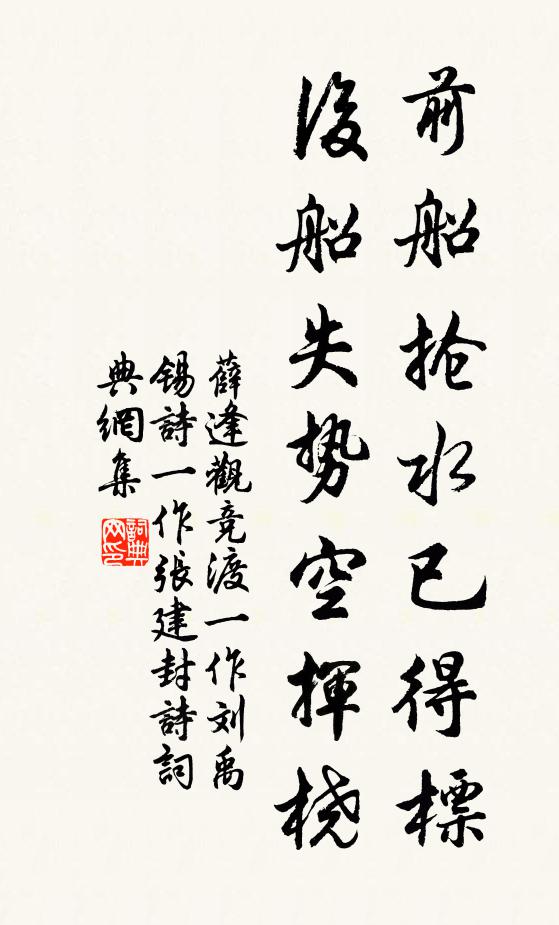 前船抢水已得標
後船失势空揮桡
薛逢觀竞渡一作刘禹
锡詩一作張建封詩詞
典網集
詞典
网印